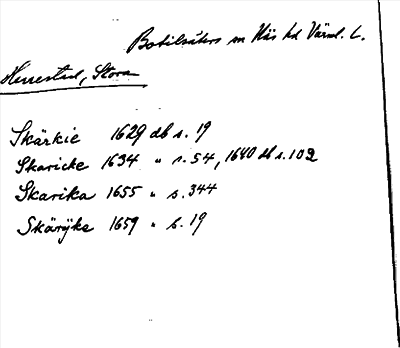 Botilsäters sn Näs hd Värml. L.
Herrestad, Stora
Skärkie 1629 db s. 19
Skaricke 1634 " s. 54, 1640 db s. 102
Skarika 1655 " s. 344
Skärijke 1659 " s. 19